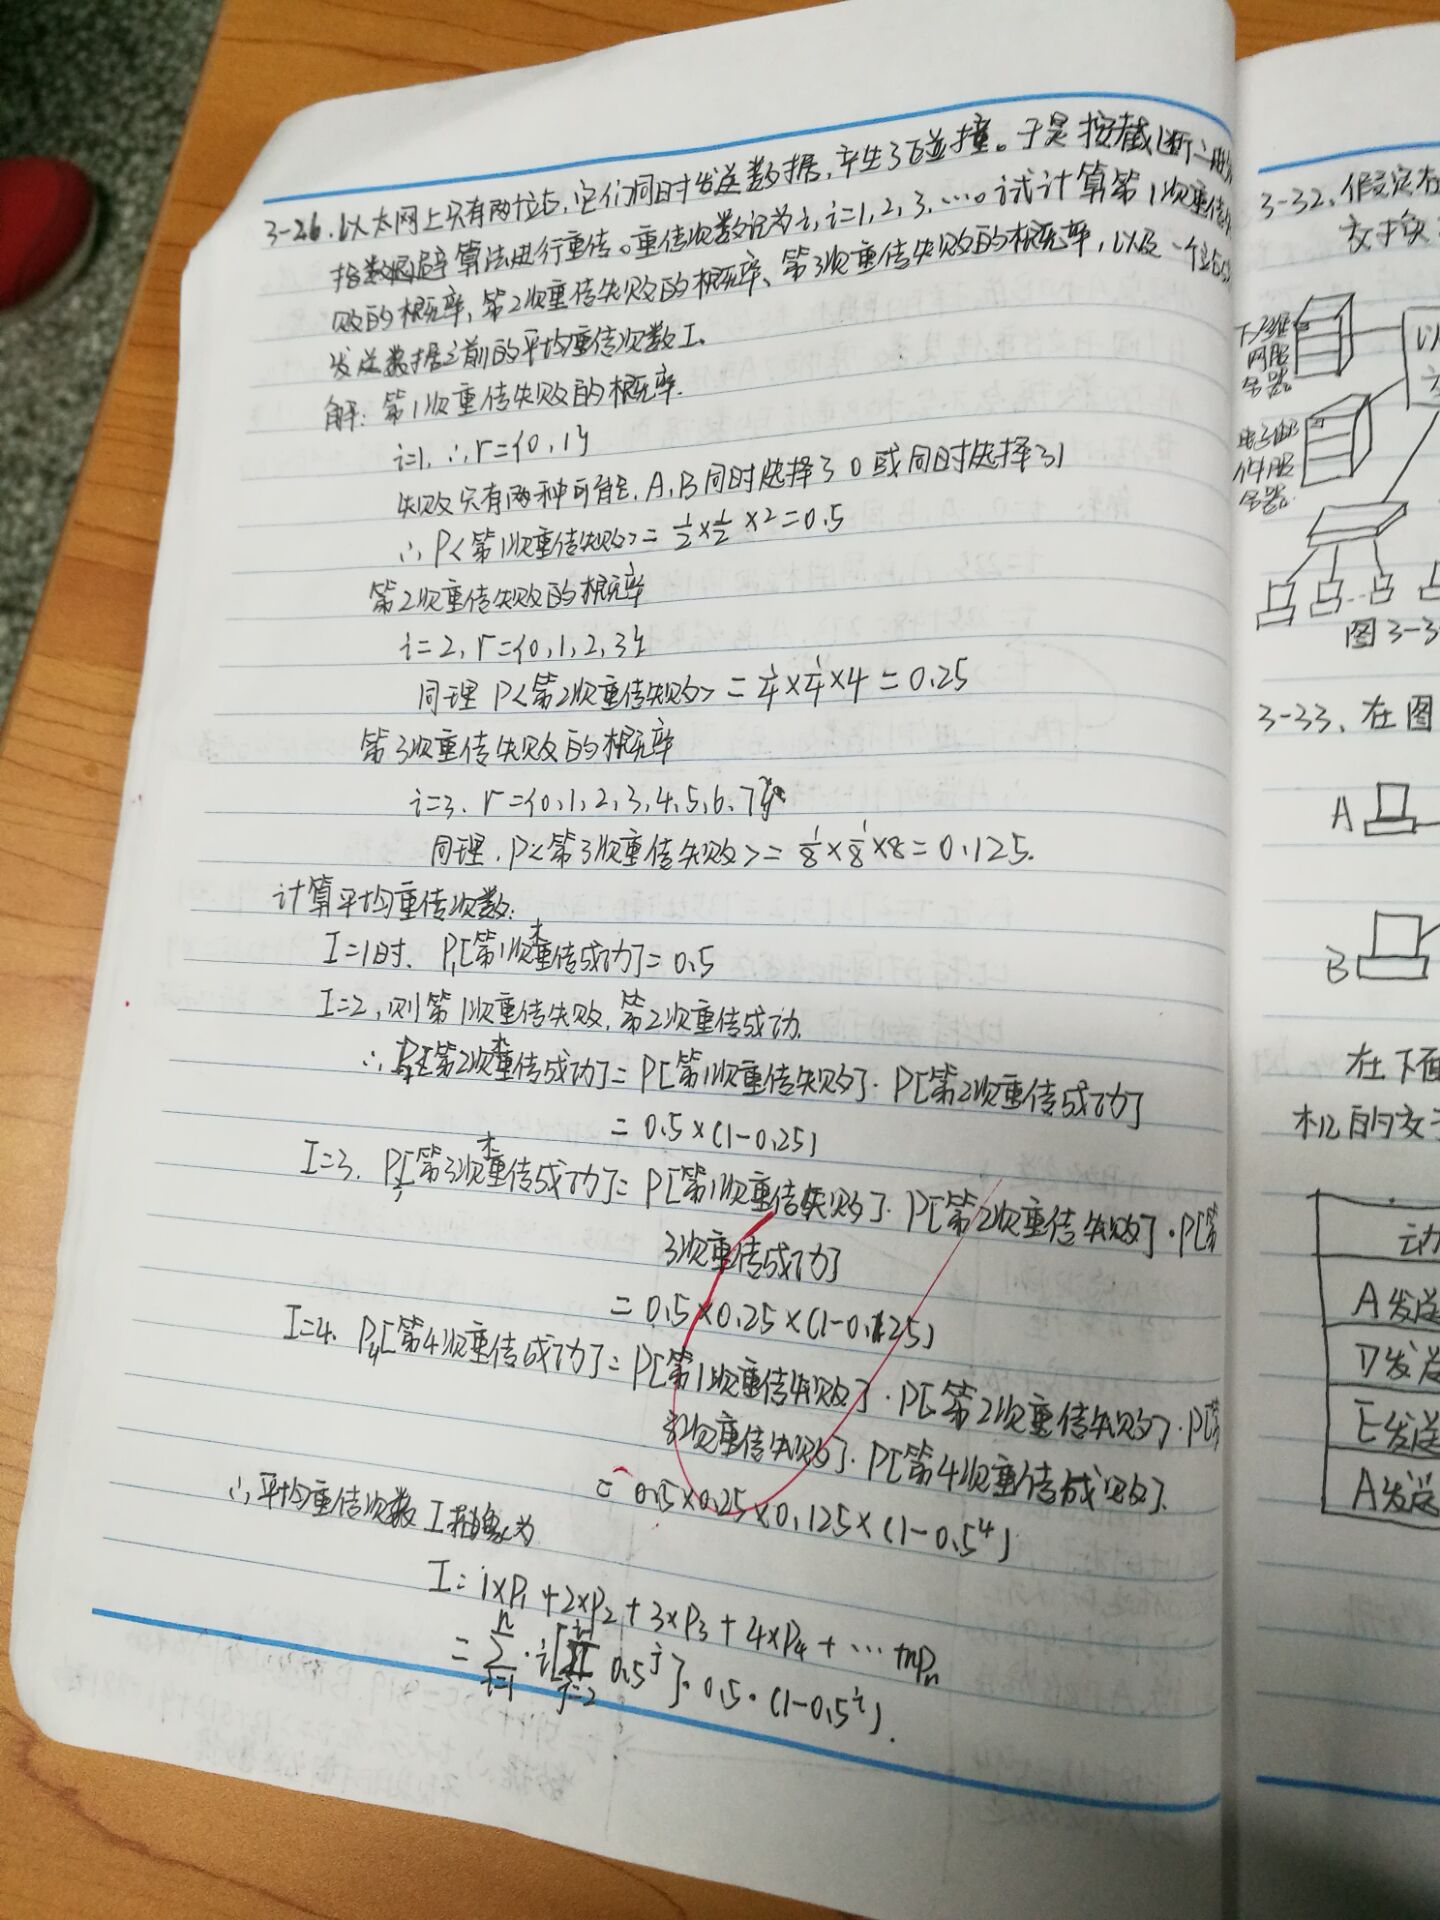 3-26.以太网上只有两个站,它们同时发送数据,产生了碰撞。于是按截断二进制
指数退避算法进行重传。重传次数记为i,i=1,2,3,…。试计算第1次重传失
败的概率,第2次重传失败的概率、第3次重传失败的概率,以及一个站
发送数据之前的平均重传次数I。
解:第1次重传失败的概率.
i=1,∴r={0,1}
失败只有两种可能,A,B同时选择了0或同时选择了1
∴P<第1次重传失败>=1/2×1/2×2=0.5
第2次重传失败的概率
i=2,r={0,1,2,3}
同理 P<第2次重传失败>=1/4×1/4×4=0.25
第3次重传失败的概率
i=3.r={0,1,2,3,4,5,6,7}
同理.P<第3次重传失败>=1/8×1/8×8=0.125.
计算平均重传次数:
I=1时.P₁[第1次才重传成功]=0.5
I=2,则第1次重传失败,第2次重传成功.
∴P₂[第2次才重传成功]=P[第1次重传失败]·P[第2次重传成功]
=0.5×(1-0.25)
I=3.P₃[第3次才重传成功]=P[第1次重传失败]·P[第2次重传失败]·P[第
3次重传成功]
=0.5×0.25×(1-0.125)
I=4.P₄[第4次重传成功]=P[第1次重传失败]·P[第2次重传失败]·P[第
3次重传失败]·P[第4次重传成败].
=0.5×0.25×0.125×(1-0.5⁴)
∴平均重传次数I抽象为
I=1×P₁+2×P₂+3×P₃+4×P₄+…+nPₙ
3-32.假定在
交换
万维
网服
务器
以
电子邮
件服
务器.
图3-3
3-33、在图
A
B
在下面
机的交
动
A发送
D发送
E发送
A发送